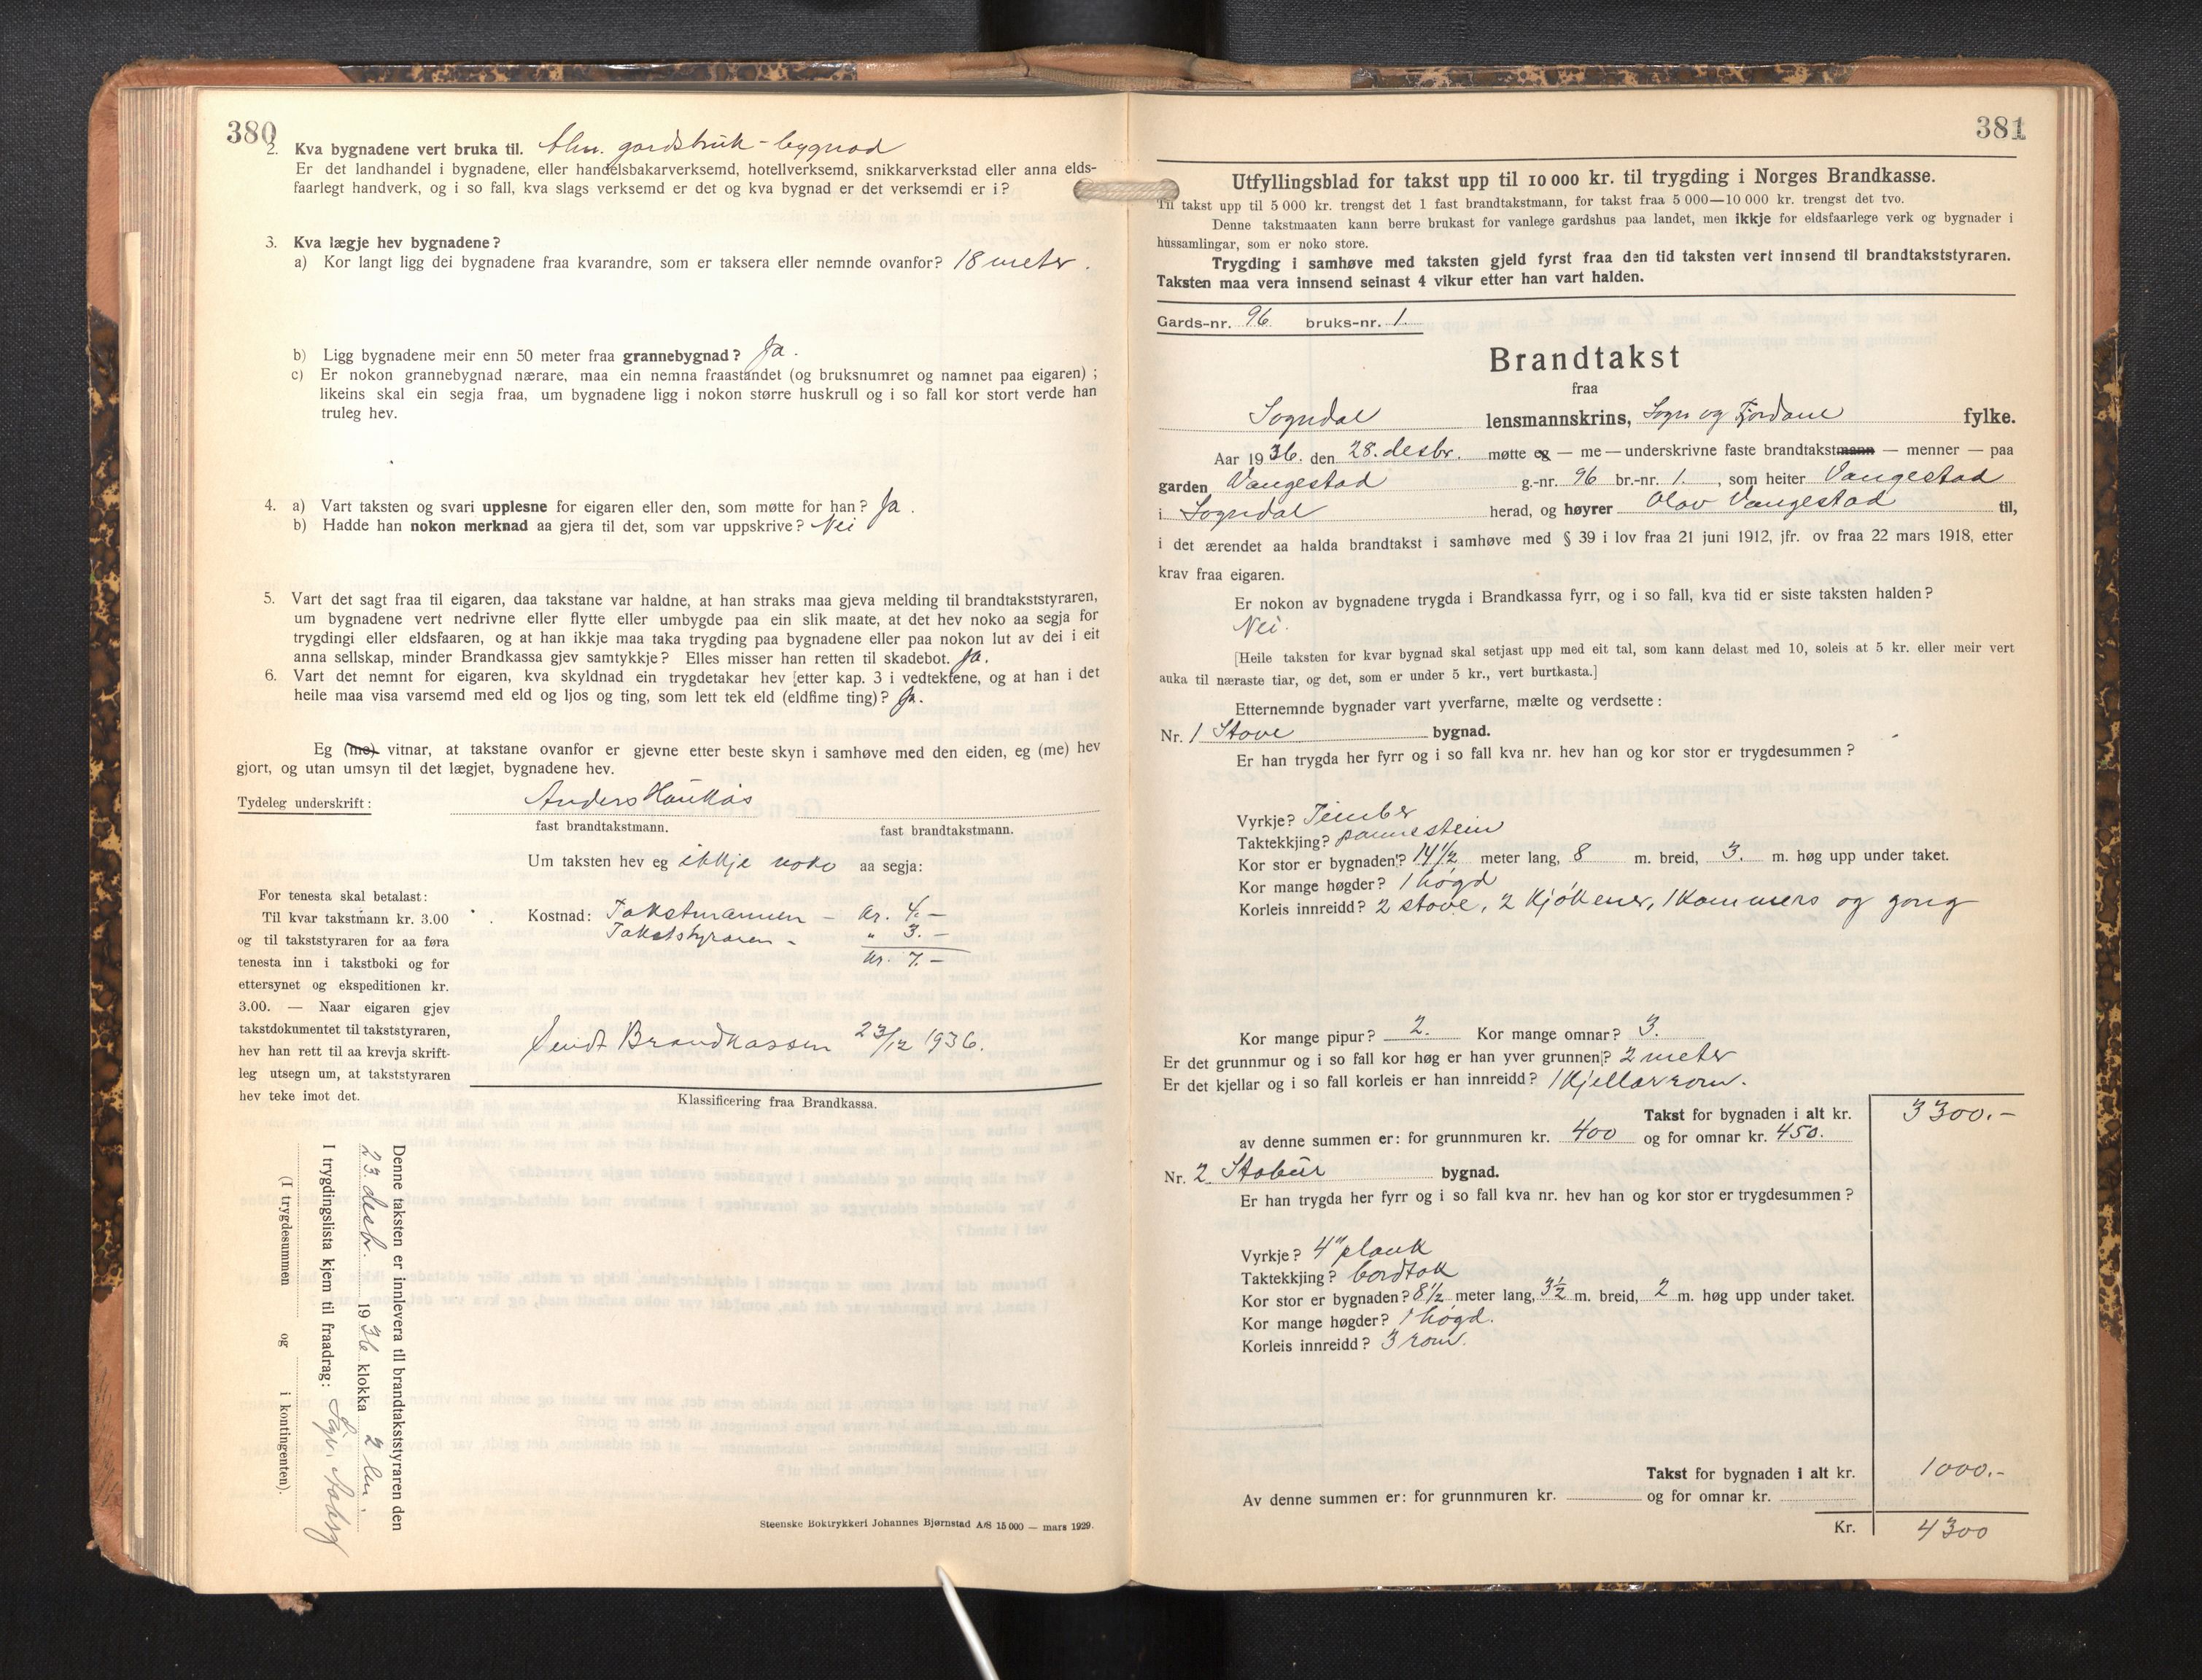 380
2. Kva bygnadene vert bruka til. Alm. gardsbruk-bygnad
Er det landhandel i bygnadene, eller handelsbakarverksemd, hotellverksemd, snikkarverkstad eller anna elds-
faarlegt handverk, og i so fall, kva slags verksemd er det og kva bygnad er det verksemdi er i?
3. Kva lægje hev bygnadene?
a) Kor langt ligg dei bygnadene fraa kvarandre, som er taksera eller nemnde ovanfor? 18 meter.
b) Ligg bygnadene meir enn 50 meter fraa grannebygnad? Ja.
c) Er nokon grannebygnad nærare, maa ein nemna fraastandet (og bruksnumret og namnet paa eigaren) ;
likeins skal ein segja fraa, um bygnadene ligg i nokon større huskrull og i so fall kor stort verde han
truleg hev.
4. a) Vart taksten og svari upplesne for eigaren eller den, som møtte for han? Ja.
b) Hadde han nokon merknad aa gjera til det, som var uppskrive? Nei
5. Vart det sagt fraa til eigaren, daa takstane var haldne, at han straks maa gjeva melding til brandtakststyraren,
um bygnadene vert nedrivne eller flytte eller umbygde paa ein slik maate, at det hev noko aa segja for
trygdingi eller eldsfaaren, og at han ikkje maa taka trygding paa bygnadene eller paa nokon lut av dei i eit
anna sellskap, minder Brandkassa gjev samtykkje? Elles misser han retten til skadebot. Ja.
6. Vart det nemnt for eigaren, kva skyldnad ein trygdetakar hev etter kap. 3 i vedtektene, og at han i det
heile maa visa varsemd med eld og ljos og ting, som lett tek eld (eldfime ting)? Ja.
Eg (me) vitnar, at takstane ovanfor er gjevne etter beste skyn i samhøve med den eiden, eg (me) hev
gjort, og utan umsyn til det lægjet, bygnadene hev.
Tydeleg underskrift: Anders Haukås
fast brandtakstmann. fast brandtakstmann.
Um taksten hev eg ikkje noko aa segja:
For tenesta skal betalast:
Til kvar takstmann kr. 3.00
og til takststyraren for aa føra
tenesta inn i takstboki og for
ettersynet og ekspeditionen kr.
3.00. — Naar eigaren gjev
takstdokumentet til takststyraren,
hev han rett til aa krevja skrift-
leg utsegn um, at takststyraren
hev teke imot det.
Kostnad: Takstmannen - kr. 4.-
Takststyraren - " 3.-
kr. 7.-
Sendt Brandkassen 23/12 1936.
Klassificering fraa Brandkassa.
Denne taksten er innlevera til brandtakststyraren den
23 desbr. 1936 klokka 2 em.
I trygdingslista kjem til fraadrag:
(I trygdesummen og i kontingenten).
Steenske Boktrykkeri Johannes Bjørnstad A/S 15 000 — mars 1929.
381
Utfyllingsblad for takst upp til 10 000 kr. til trygding i Norges Brandkasse.
Til takst upp til 5 000 kr. trengst det 1 fast brandtakstmann, for takst fraa 5 000—10 000 kr. trengst det tvo.
Denne takstmaaten kann berre brukast for vanlege gardshus paa landet, men ikkje for eldsfaarlege verk og bygnader i
hussamlingar, som er noko store.
Trygding i samhøve med taksten gjeld fyrst fraa den tid taksten vert innsend til brandtakststyraren.
Taksten maa vera innsend seinast 4 vikur etter han vart halden.
Gards-nr. 96 bruks-nr. 1.
Brandtakst
fraa
Sogndal lensmannskrins, Sogn og Fjordane fylke.
Aar 1936. den 28. desbr. møtte eg — me — underskrivne faste brandtakstmann — menner — paa
garden Vangestad g.-nr. 96 br.-nr. 1., som heiter Vangestad
i Sogndal herad, og høyrer Olav Vangestad til,
i det ærendet aa halda brandtakst i samhøve med § 39 i lov fraa 21 juni 1912, jfr. ov fraa 22 mars 1918, etter
krav fraa eigaren.
Er nokon av bygnadene trygda i Brandkassa fyrr, og i so fall, kva tid er siste taksten halden?
Nei.
[Heile taksten for kvar bygnad skal setjast upp med eit tal, som kann delast med 10, soleis at 5 kr. eller meir vert
auka til næraste tiar, og det, som er under 5 kr., vert burtkasta.]
Etternemnde bygnader vart yverfarne, mælte og verdsette :
Nr. 1 Stove bygnad.
Er han trygda her fyrr og i so fall kva nr. hev han og kor stor er trygdesummen ?
Vyrkje? Timber
Taktekkjing? pannestein
Kor stor er bygnaden? 14 1/2 meter lang, 8 m. breid, 3. m. høg upp under taket.
Kor mange høgder? 1 høgd
Korleis innreidd? 2 stove, 2 kjøkener, 1 kammers og gong
Kor mange pipur? 2. Kor mange omnar? 3.
Er det grunnmur og i so fall kor høg er han yver grunnen? 2 meter
Er det kjellar og i so fall korleis er han innreidd? 1 kjellarrom.
Takst for bygnaden i alt kr. 3300.-
av denne summen er: for grunnmuren kr. 400 og for omnar kr. 450.
Nr. 2 Stabur bygnad.
Er han trygda her fyrr og i so fall kva nr. hev han og kor stor er trygdesummen ?
Vyrkje? 4" plank
Taktekkjing? bordtak
Kor stor er bygnaden? 8 1/2 meter lang, 3 1/2 m. breid, 2 m. høg upp under taket.
Kor mange høgder? 1 høgd.
Korleis innreidd? 3 rom.
Takst for bygnaden i alt kr. 1000.-
Av denne summen er: for grunnmuren kr. og for omnar kr.
Kr. 4300